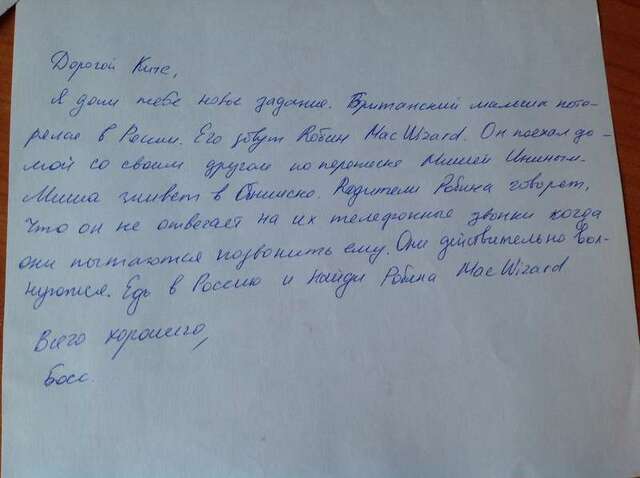 Дорогой Ките,
Я дали тебе новое задание. Британский мальчик поте-
рялся в России. Его зовут Robин MacWizard. Он поехал до-
мой со своим другом по переписке Мишей Ининым.
Миша живет в Обнинске. Родители Робина говорят,
что он не отвечает на их телефонные звонки когда
они пытаются позвонить ему. Они действительно вол-
нуются. Едь в Россию и найди Робина MacWizard
Всего хорошего,
Босс.